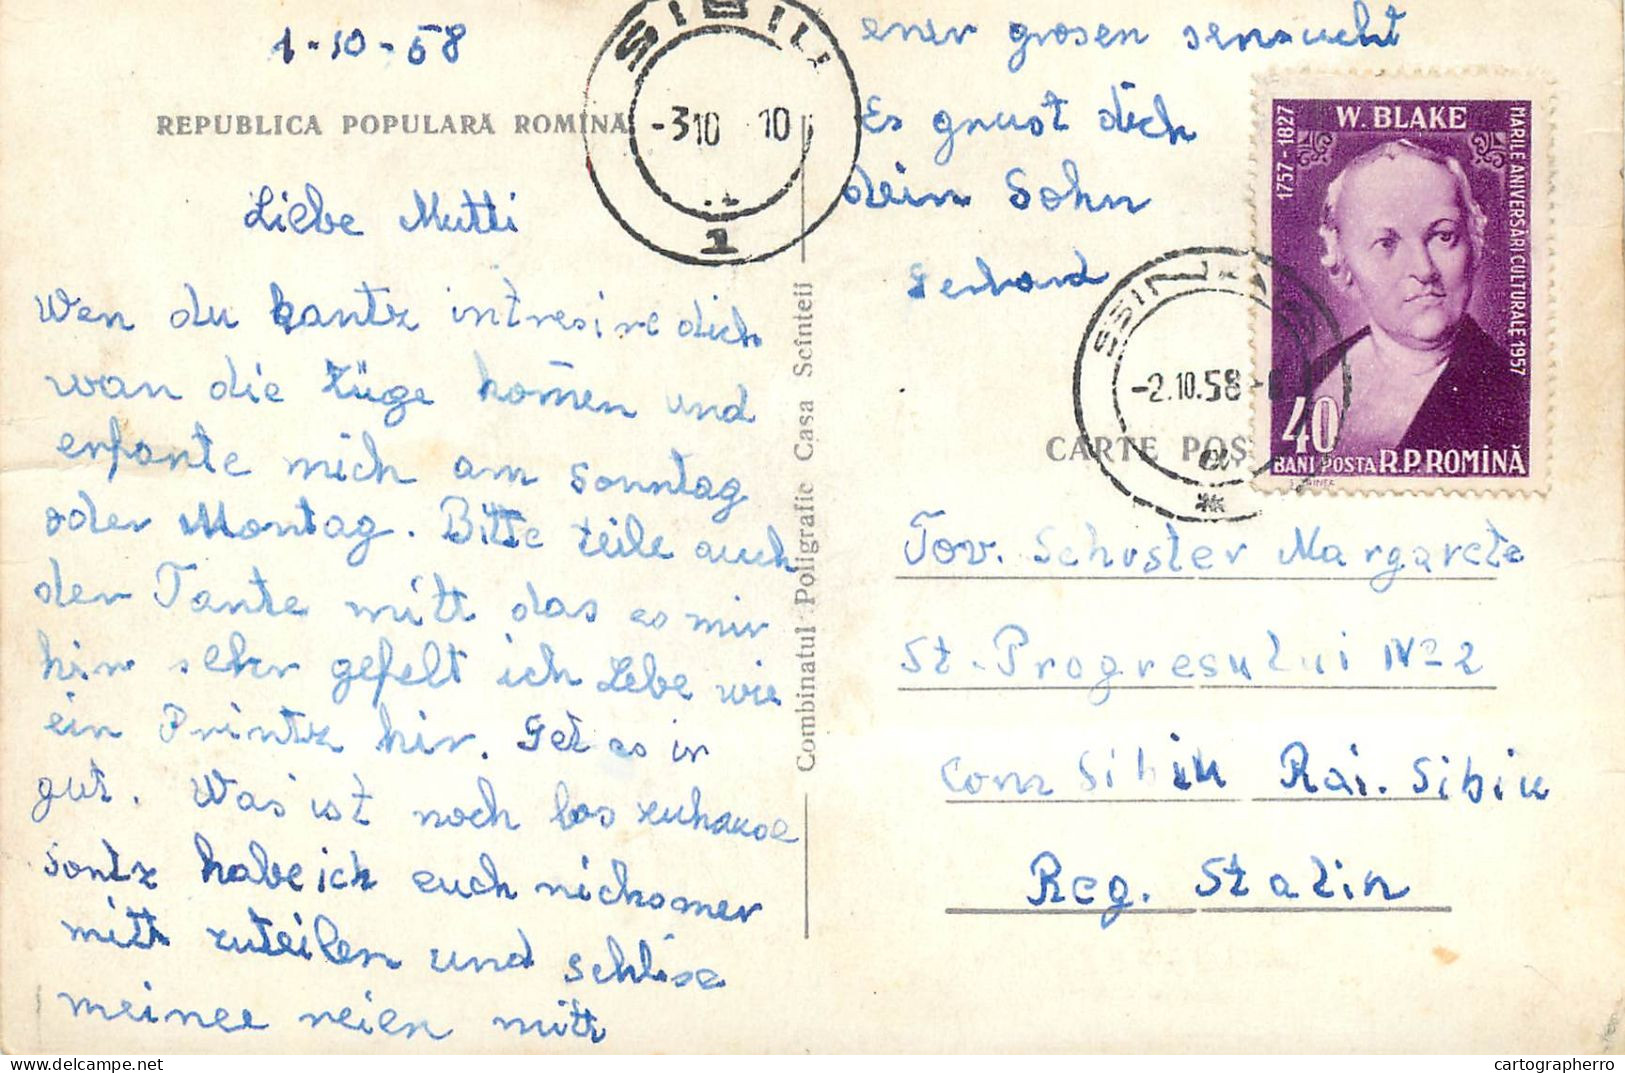 1-10-58
REPUBLICA POPULARĂ ROMÎNĂ
Liebe Mutti
Wen du kantz intresire dich
wan die Züge kom̄en und
erfante mich am Sonntag
oder Montag. Bitte teile auch
der Tante mitt das es mir
hir sehr gefelt ich Lebe wie
ein Printz hir. Get es ir
gut. Was ist noch los zuhause
sontz habe ich euch nicks mer
mitt zuteilen und schlise
meinee reien mitt
ener grosen sensucht
Es grust dich
dein Sohn
Gerhard
SIBIU
-3 10 10
1
Combinatul Poligrafic Casa Scînteii
W. BLAKE
1757-1827
MARILE ANIVERSĂRI CULTURALE 1957
40
BANI POSTA R.P. ROMÎNĂ
-2.10.58
CARTE POȘ
Tov. Schuster Margarete
St. Progresului No 2
Com Sibiu Rai. Sibiu
Reg. Stalin
cartographerro